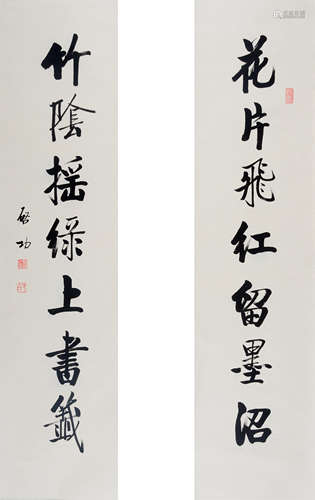 花片飛红留墨沼
竹陰摇绿上書籤
啓功